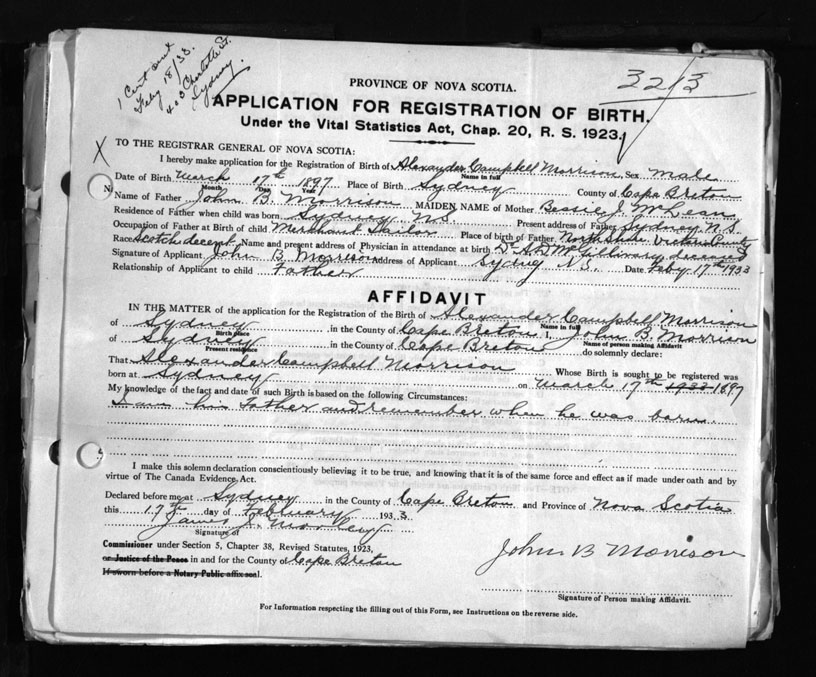 1 Cert sent
Feby 18/33.
403 Charlotte St.
Sydney.
3213
PROVINCE OF NOVA SCOTIA.
APPLICATION FOR REGISTRATION OF BIRTH.
Under the Vital Statistics Act, Chap. 20, R. S. 1923.
X TO THE REGISTRAR GENERAL OF NOVA SCOTIA:
I hereby make application for the Registration of Birth of Alexander Campbell Morrison Sex male
Name in full
Date of Birth March 17th 1897 Place of Birth Sydney County of Cape Breton
Month Day Year
Name of Father John B. Morrison MAIDEN NAME of Mother Bessie J. McLean
Residence of Father when child was born Sydney N.S. Present address of Father Sydney N.S.
Occupation of Father at Birth of child Merchant Tailor Place of birth of Father North Shore Victoria County
Race Scotch decent Name and present address of Physician in attendance at birth Dr A. D. McGillivray deceased
Signature of Applicant John B Morrison Address of Applicant Sydney N.S. Date Feby 17th 1933
Relationship of Applicant to child Father
AFFIDAVIT
IN THE MATTER of the application for the Registration of the Birth of Alexander Campbell Morrison
Name in full
of Sydney in the County of Cape Breton I, John B. Morrison
Birth place Name of person making Affidavit
of Sydney in the County of Cape Breton do solemnly declare:
Present residence
That Alexander Campbell Morrison Whose Birth is sought to be registered was
born at Sydney on March 17th 1933 1897
My knowledge of the fact and date of such Birth is based on the following Circumstances:
I am his Father and remember when he was born.
I make this solemn declaration conscientiously believing it to be true, and knowing that it is of the same force and effect as if made under oath and by
virtue of The Canada Evidence Act.
Declared before me at Sydney in the County of Cape Breton and Province of Nova Scotia
this 17th day of February 1933
James
Signature of
Commissioner under Section 5, Chapter 38, Revised Statutes, 1923,
or Justice of the Peace in and for the County of Cape Breton
If sworn before a Notary Public affix seal.
John B Morrison
Signature of Person making Affidavit.
For Information respecting the filling out of this Form, see Instructions on the reverse side.